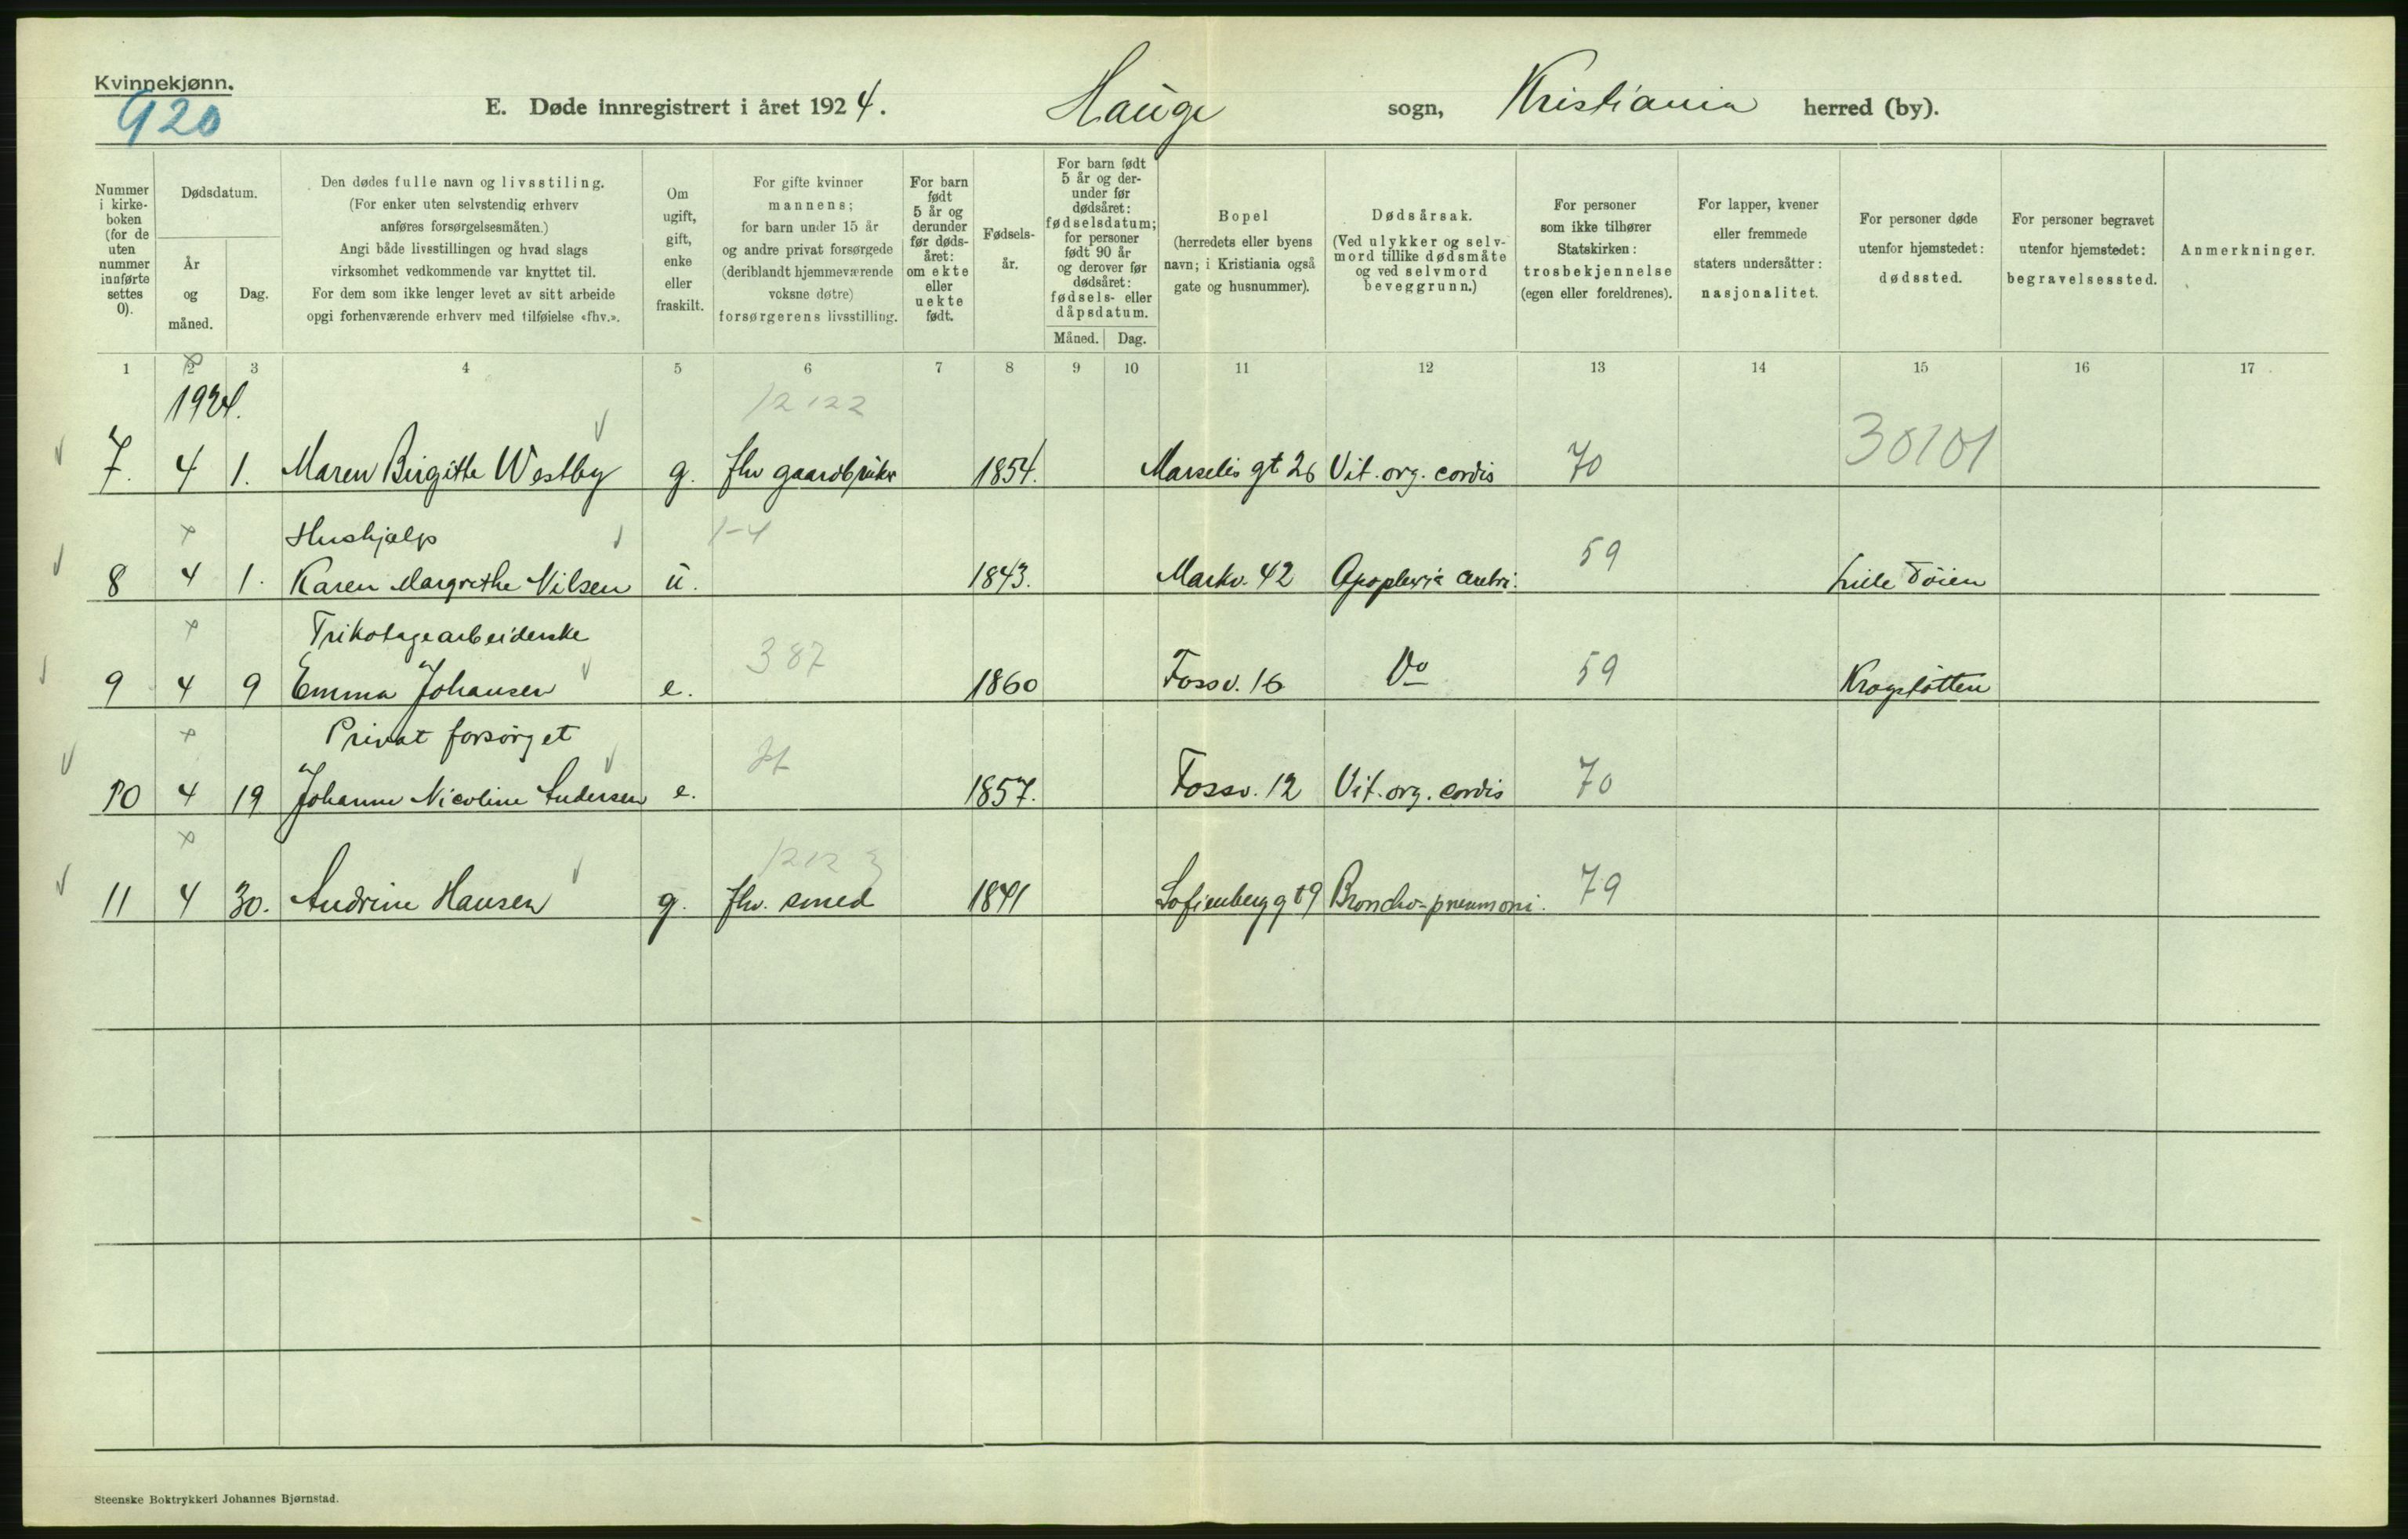 Kvinnekjønn.
920
E. Døde innregistrert i året 1924. Hauge sogn, Kristiania herred (by).
Nummer i kirke-boken (for de uten nummer innførte settes 0).
Dødsdatum.
År og måned.
Dag.
Den dødes fulle navn og livsstiling.
(For enker uten selvstendig erhverv
anføres forsørgelsesmåten.)
Angi både livsstillingen og hvad slags
virksomhet vedkommende var knyttet til.
For dem som ikke lenger levet av sitt arbeide
opgi forhenværende erhverv med tilføielse «fhv.».
Om ugift, gift, enke eller fraskilt.
For gifte kvinner
mannens;
for barn under 15 år
og andre privat forsørgede
(deriblandt hjemmeværende
voksne døtre)
forsørgerens livsstilling.
For barn født 5 år og derunder før døds-året: om ekte eller uekte født.
Fødsels-år.
For barn født
5 år og der-
under før
dødsåret:
fødselsdatum;
for personer
født 90 år
og derover før
dødsåret:
fødsels- eller
dåpsdatum.
Måned. Dag.
Bopel
(herredets eller byens
navn; i Kristiania også
gate og husnummer).
Dødsårsak.
(Ved ulykker og selv-
mord tillike dødsmåte
og ved selvmord
beveggrunn.)
For personer
som ikke tilhører
Statskirken:
trosbekjennelse
(egen eller foreldrenes).
For lapper, kvener
eller fremmede
staters undersåtter:
nasjonalitet.
For personer døde
utenfor hjemstedet:
dødssted.
For personer begravet
utenfor hjemstedet:
begravelsessted.
Anmerkninger.
1 2 3 4 5 6 7 8 9 10 11 12 13 14 15 16 17
1924. 12122
7. 4 1. Maren Birgitte Westby g. fhv gaardbruker 1854. Marselis gt 26 Vit. org. cordis 70 30101
Hushjælp 1-4
8 4 1. Karen Margrethe Nilsen u. 1843. Markv. 42 Apoplexia cerebri. 59 Lille Tøien
Trikotagearbeiderske 387
9 4 9 Emma Johansen e. 1860 Fossv. 16 Do 59 Krogstøtten
Privat forsørget
10 4 19 Johanne Nicoline Andersen e. 1857. Fossv. 12 Vit. org. cordis 70
1212 3
11 4 30. Andrine Hansen g. fhv. smed 1841 Sofienberg gt 9 Broncho-pneumoni. 79
Steenske Boktrykkeri Johannes Bjørnstad.